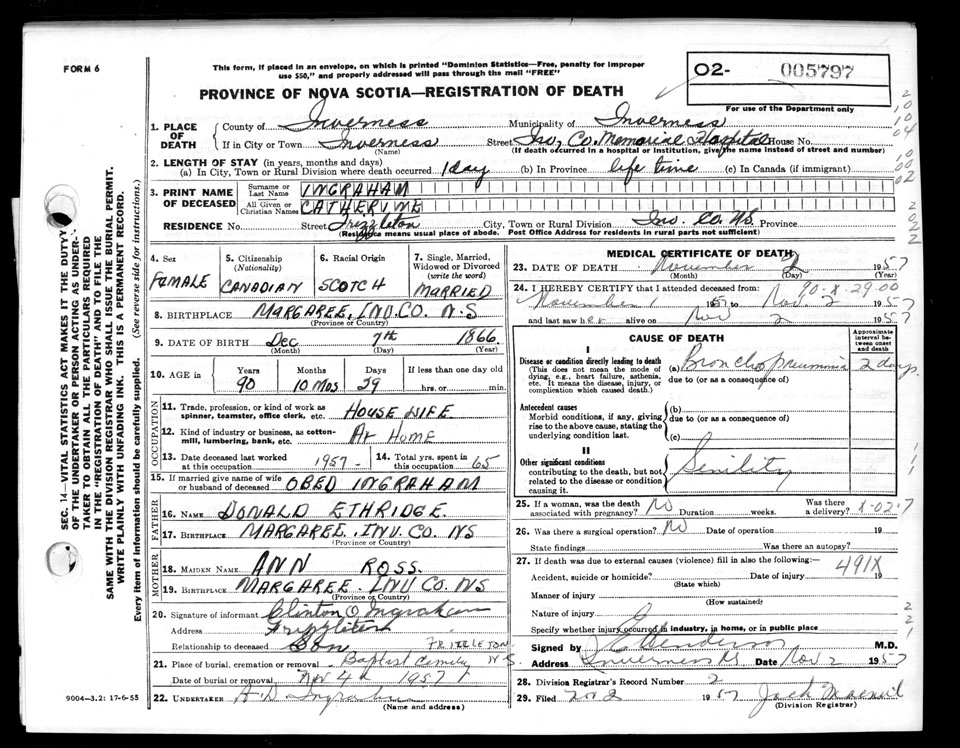 FORM 6
This form, if placed in an envelope, on which is printed "Dominion Statistics—Free, penalty for improper
use $50," and properly addressed will pass through the mail "FREE"
PROVINCE OF NOVA SCOTIA—REGISTRATION OF DEATH
02- 005797
For use of the Department only
1. PLACE OF DEATH
County of Inverness Municipality of Inverness
If in City or Town Inverness Street Inv. Co. Memorial Hospital House No.
(Name) (If death occurred in a hospital or institution, give the name instead of street and number)
2. LENGTH OF STAY (in years, months and days)
(a) In City, Town or Rural Division where death occurred 1 day (b) In Province life time (c) In Canada (if immigrant)
3. PRINT NAME OF DECEASED
Surname or Last Name INGRAHAM
All Given or Christian Names CATHERINE
RESIDENCE No. Street Frizzleton City, Town or Rural Division Inv. Co. NS Province
(Residence means usual place of abode. Post Office Address for residents in rural parts not sufficient)
4. Sex
FEMALE
5. Citizenship
(Nationality)
CANADIAN
6. Racial Origin
SCOTCH
7. Single, Married, Widowed or Divorced
(write the word)
MARRIED
8. BIRTHPLACE MARGAREE, INV. CO. N.S
(Province or Country)
9. DATE OF BIRTH Dec 7th 1866
(Month) (Day) (Year)
10. AGE in
Years Months Days If less than one day old
90 10 Mos 29 hrs. or min.
OCCUPATION
11. Trade, profession, or kind of work as spinner, teamster, office clerk, etc. HOUSE WIFE
12. Kind of industry or business, as cotton-mill, lumbering, bank, etc. At HOME
13. Date deceased last worked at this occupation 1957 14. Total yrs. spent in this occupation 65
15. If married give name of wife or husband of deceased OBED INGRAHAM
FATHER
16. NAME DONALD ETHRIDGE
17. BIRTHPLACE MARGAREE, INV. CO. NS
(Province or Country)
MOTHER
18. MAIDEN NAME ANN ROSS.
19. BIRTHPLACE MARGAREE. INV CO. NS
(Province or Country)
20. Signature of informant Clinton O Ingraham
Address Frizzleton
Relationship to deceased Son
FRIZZLETON
N.S
21. Place of burial, cremation or removal Baptist Cemetery
Date of burial or removal Nov 4th 1957
22. UNDERTAKER A.D. Ingraham
(Name and address)
MEDICAL CERTIFICATE OF DEATH
23. DATE OF DEATH November 2 1957
(Month) (Day) (Year)
90-X-29-00
24. I HEREBY CERTIFY that I attended deceased from:
November 1 1957 Nov. 2 1957
and last saw her alive on Nov 2 1957
CAUSE OF DEATH
Approximate interval between onset and death
I
Disease or condition directly leading to death
(This does not mean the mode of dying, e.g., heart failure, asthenia, etc. It means the disease, injury, or complication which caused death.)
(a) Bronchopneumonia 2 days
due to (or as a consequence of)
Antecedent causes
Morbid conditions, if any, giving rise to the above cause, stating the underlying condition last.
(b)
due to (or as a consequence of)
(c)
II
Other significant conditions
contributing to the death, but not related to the disease or condition causing it.
Senility
25. If a woman, was the death associated with pregnancy? No Duration weeks. Was there a delivery? X-02-7
26. Was there a surgical operation? No Date of operation 19
State findings Was there an autopsy?
27. If death was due to external causes (violence) fill in also the following:
491X
Accident, suicide or homicide? Date of injury 19
(State which)
Manner of injury
(How sustained)
Nature of injury
Specify whether injury occurred in industry, in home, or in public place
Signed by Henderson M.D.
Address Inverness NS Date Nov 2 1957
28. Division Registrar's Record Number 2
29. Filed Nov 2 1957 Jack Macneil
(Division Registrar)
9004—3.2: 17-6-55
SEC. 14—VITAL STATISTICS ACT MAKES IT THE DUTY
OF THE UNDERTAKER OR PERSON ACTING AS UNDER-
TAKER TO OBTAIN ALL THE PARTICULARS REQUIRED
IN THE "REGISTRATION OF DEATH" AND TO FILE THE
SAME WITH THE DIVISION REGISTRAR WHO SHALL ISSUE THE BURIAL PERMIT.
WRITE PLAINLY WITH UNFADING INK. THIS IS A PERMANENT RECORD.
Every item of information should be carefully supplied. (See reverse side for instructions.)